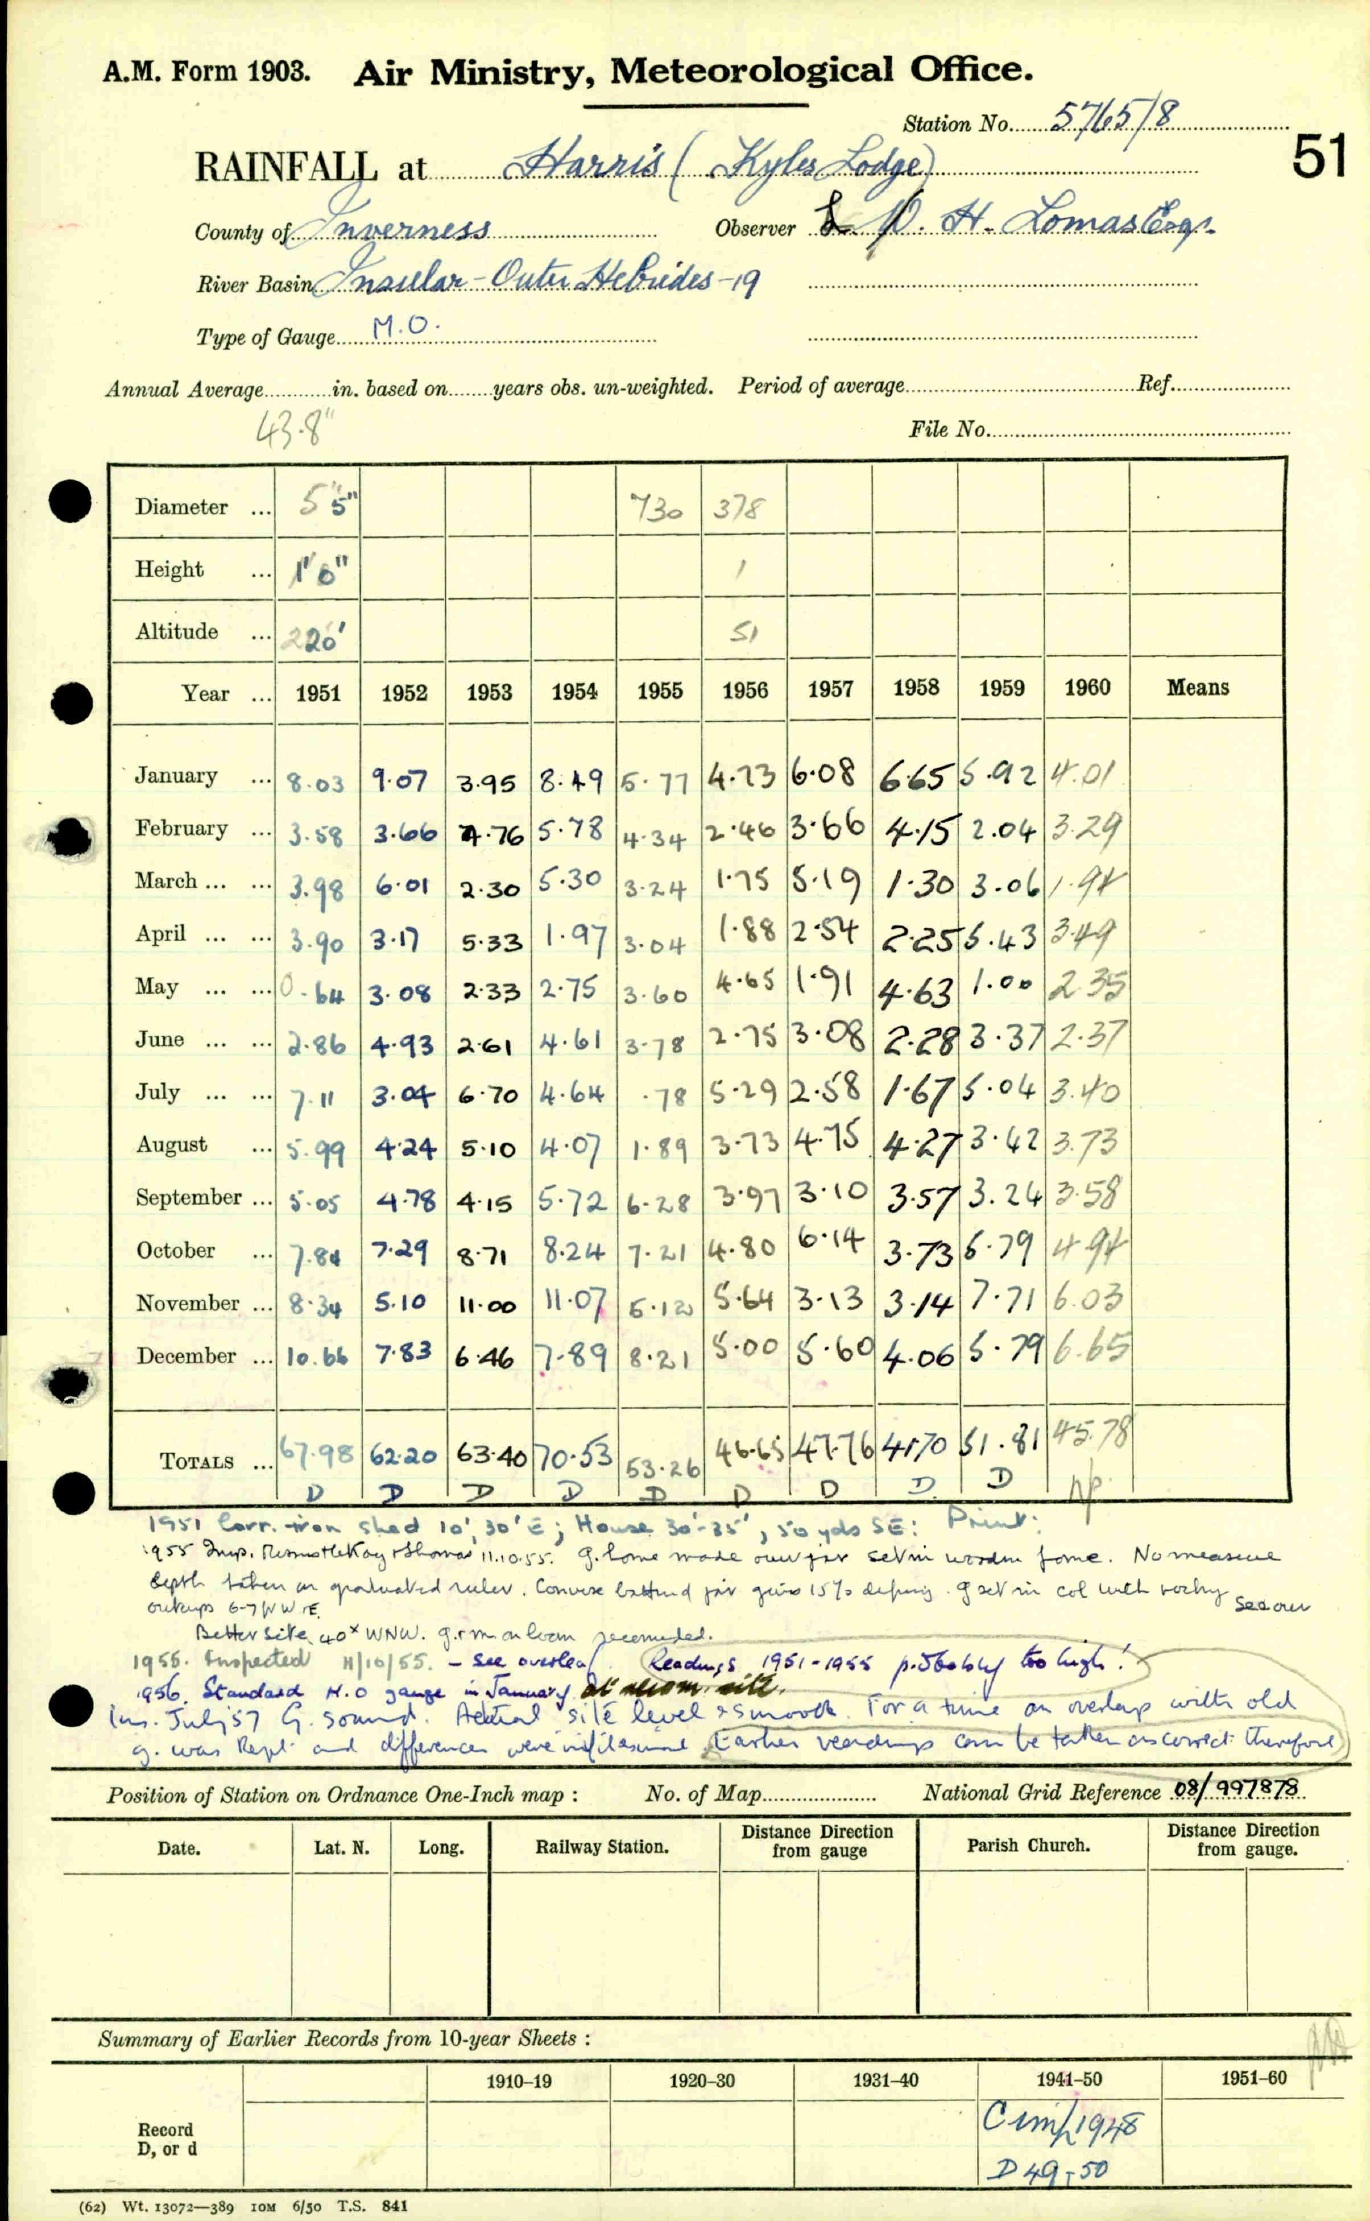 A.M. Form 1903. Air Ministry, Meteorological Office.
Station No. 5765/8
51
RAINFALL at Harris (Kyles Lodge)
County of Inverness Observer D. H. Lomas Esq.
River Basin Insular - Outer Hebrides - 19
Type of Gauge M.O.
Annual Average in. based on years obs. un-weighted. Period of average Ref.
43.8"
File No.
Diameter ... 5" 5" 730 378
Height ... 1' 0" 1
Altitude ... 20' 51
Year ... 1951 1952 1953 1954 1955 1956 1957 1958 1959 1960 Means
January ... 8.03 9.07 3.95 8.49 5.77 4.73 6.08 6.65 5.92 4.01
February ... 3.58 3.66 4.76 5.78 4.34 2.46 3.66 4.15 2.04 3.29
March ... ... 3.98 6.01 2.30 5.30 3.24 1.75 5.19 1.30 3.06 1.94
April ... ... 3.90 3.17 5.33 1.97 3.04 1.88 2.54 2.25 5.43 3.49
May ... ... 0.64 3.08 2.33 2.75 3.60 4.65 1.91 4.63 1.00 2.35
June ... ... 2.86 4.93 2.61 4.61 3.78 2.75 3.08 2.28 3.37 2.37
July ... ... 7.11 3.04 6.70 4.64 .78 5.29 2.58 1.67 5.04 3.40
August ... 5.99 4.24 5.10 4.07 1.89 3.73 4.75 4.27 3.42 3.73
September ... 5.05 4.78 4.15 5.72 6.28 3.97 3.10 3.57 3.24 3.58
October ... 7.84 7.29 8.71 8.24 7.21 4.80 6.14 3.73 5.79 4.94
November ... 8.34 5.10 11.00 11.07 5.12 5.64 3.13 3.14 7.71 6.03
December ... 10.66 7.83 6.46 7.89 8.21 5.00 5.60 4.06 5.79 6.65
TOTALS ... 67.98 62.20 63.40 70.53 53.26 46.65 47.76 41.70 51.81 45.78
D D D D D D D D D np.
1951 Corr. iron shed 10', 30' E; House 30'-35', 50 yds SE: Print:
1955 Insp. 11.10.55. g. home made over jar set in wooden frame. No measure
depth taken on graduated ruler. Convex bottom'd jar gives 15% g set in col with rocky
outcrops 6-7' W WNE. See over
Better site 40x WNW. g. r m on loan recommended.
1955. Inspected 11/10/55. - see overleaf. Readings 1951-1955 probably too high!
1956. Standard M.O gauge in January at recom. site.
Ins. July 57 G. sound. Actual site level & smooth. For a time an overlap with old
g. was kept and differences were infitesimal Earlier readings can be taken as correct therefore
Position of Station on Ordnance One-Inch map : No. of Map National Grid Reference 08/997878
Date. Lat. N. Long. Railway Station. Distance Direction from gauge Parish Church. Distance Direction from gauge.
Summary of Earlier Records from 10-year Sheets :
1910-19 1920-30 1931-40 1941-50 1951-60
Record
D, or d
1948
D 49-50
(62) Wt. 13072—389 10M 6/50 T.S. 841